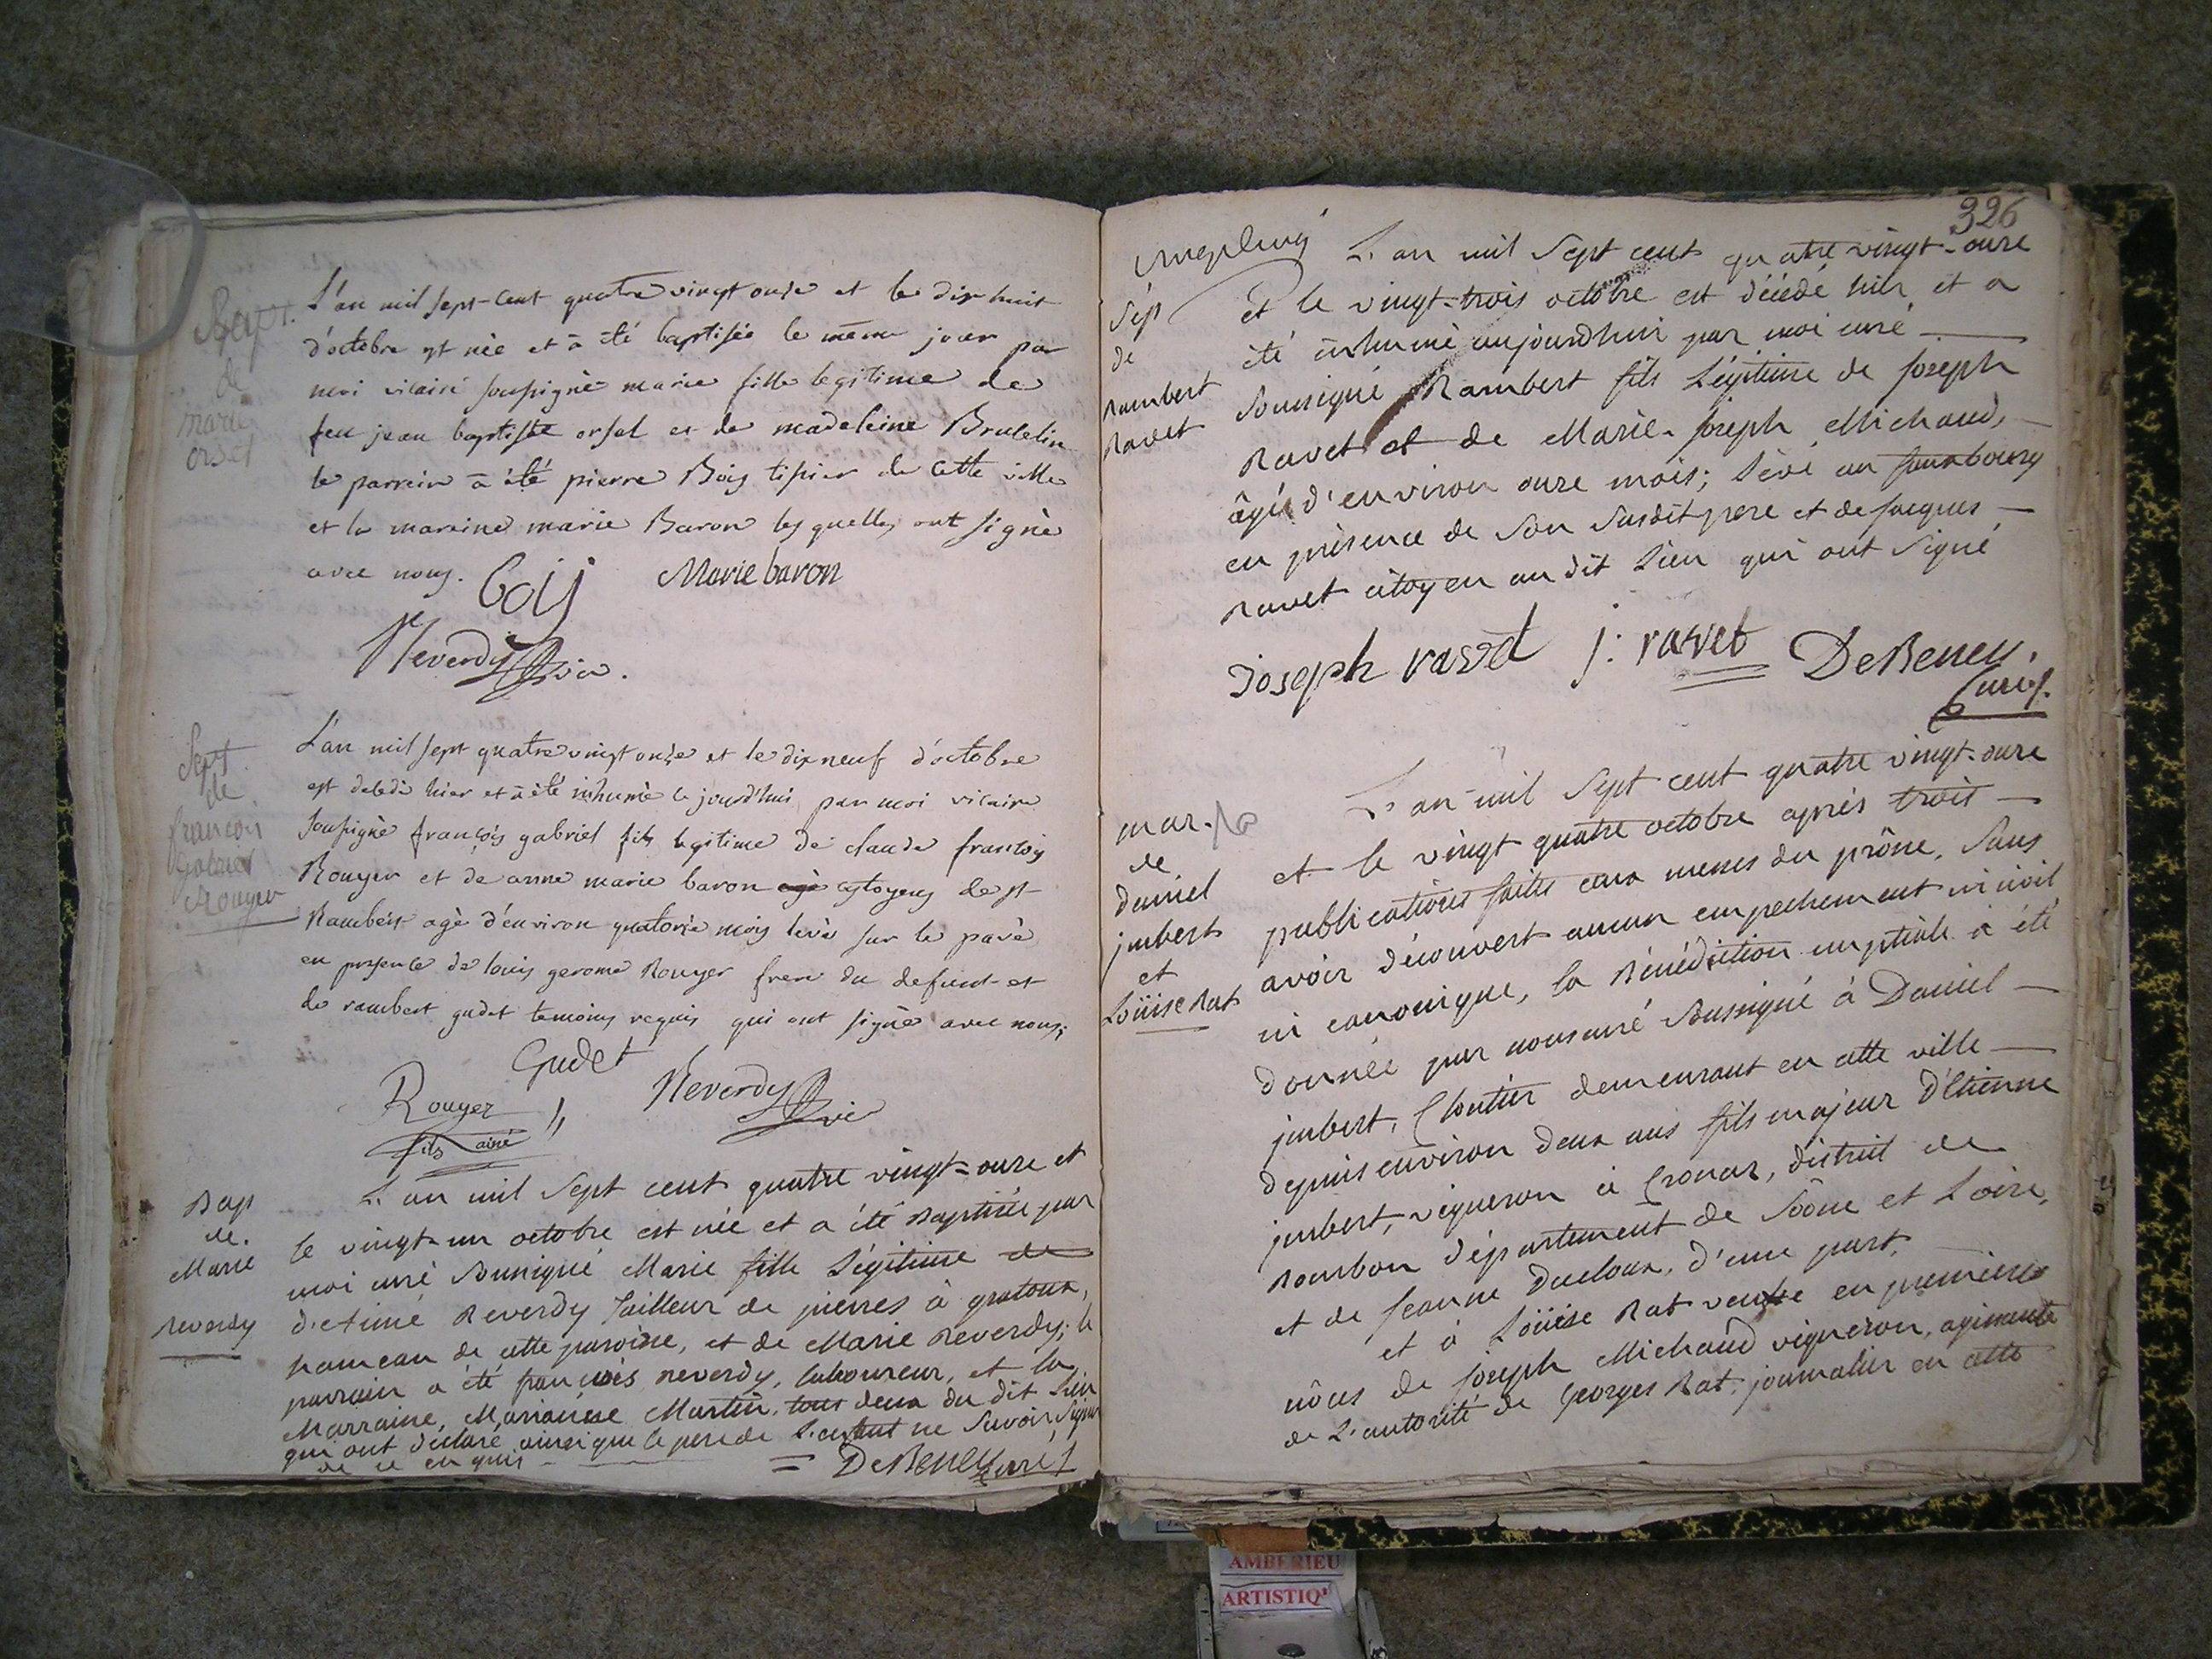 Bapt.
de
marie
orsel
L'an mil sept-cent quatre vingt onze et le dix huit
d'octobre est née et à été baptisée le même jour par
moi vicaire soussigné marie fille legitime de
feu jean baptiste orsel et de madeleine Brulelin
le parrein à été pierre Boiy tissier de cette ville
et la marreine marie Baron les quelles ont signè
avec nous.
Boij Marie baron
Reverdy vic.
Sept
de
francois
gabriel
Rouyer
L'an mil sept quatre vingt onze et le dix neuf d'octobre
est dećedé hier et à été inhumé ce jourd'hui par moi vicaire
soussigné françois gabriel fils legitime de claude françois
Rouyer et de anne marie baron agé cytoyens de st
Rambert agé d'environ quatorze mois levé sur le pavé
en presence de louis gerome Rouyer frere du defunt et
de rambert gudet temoins requis qui ont signé avec nous;
Gudet
Rouyer
fils ainé
Reverdy vic
Bap
de.
Marie
reverdy
L'an mil sept cent quatre vingt-onze et
le vingt-un octobre est née et a été Baptisée par
moi curé soussigné Marie fille Légitime de
d'Aimé Reverdy Tailleur de pierres à gratoux,
hameau de cette paroisse, et de Marie Reverdy; le
parrain a été françois reverdy, laboureur, et la
Marraine, Marianne Martin, tous deux du dit Lieu
qui ont déclaré ainsi que le pere de L'enfant ne Savoir Signer
de ce enquis =
DeBeney curé
326
Sép
de
Rambert
Ravet
L'an mil Sept cent quatre vingt-onze
et le vingt-trois octobre est décédé hier, et a
été inhumé aujourdhui par moi curé
Soussigné Rambert fils Légitime de Joseph
Ravet et de Marie-Joseph Michaud,
âgé d'environ onze mois; Levé au fauxbourg
en présence de Son Susdit pere et de Jacques
Ravet citoyen au dit Lieu qui ont Signé
joseph ravet j: ravet DeBeney.
Curé.
mar.
de
Daniel
jmbert
et
Loüise Rat
L'an mil Sept cent quatre vingt-onze
et le vingt quatre octobre après trois
publications faites aux messes du prône, Sans
avoir découvert aucun empechement ni civil
ni canonique, la Bénédiction nuptiale a été
donnée par nous curé Soussigné à Daniel
jmbert, Cloutier demeurant en cette ville
depuis environ deux ans fils majeur D'Etienne
jmbert, vigneron à Cronas, district de
Bourbon département de Sâone et Loire,
et de Jeanne Ducloux, d'une part,
et à Loüise Rat veuve en premieres
nôces de Joseph Michaud vigneron, agissante
de L'autorité de Georges Rat, journalier en cette
AMBERIEU
ARTISTIQ'